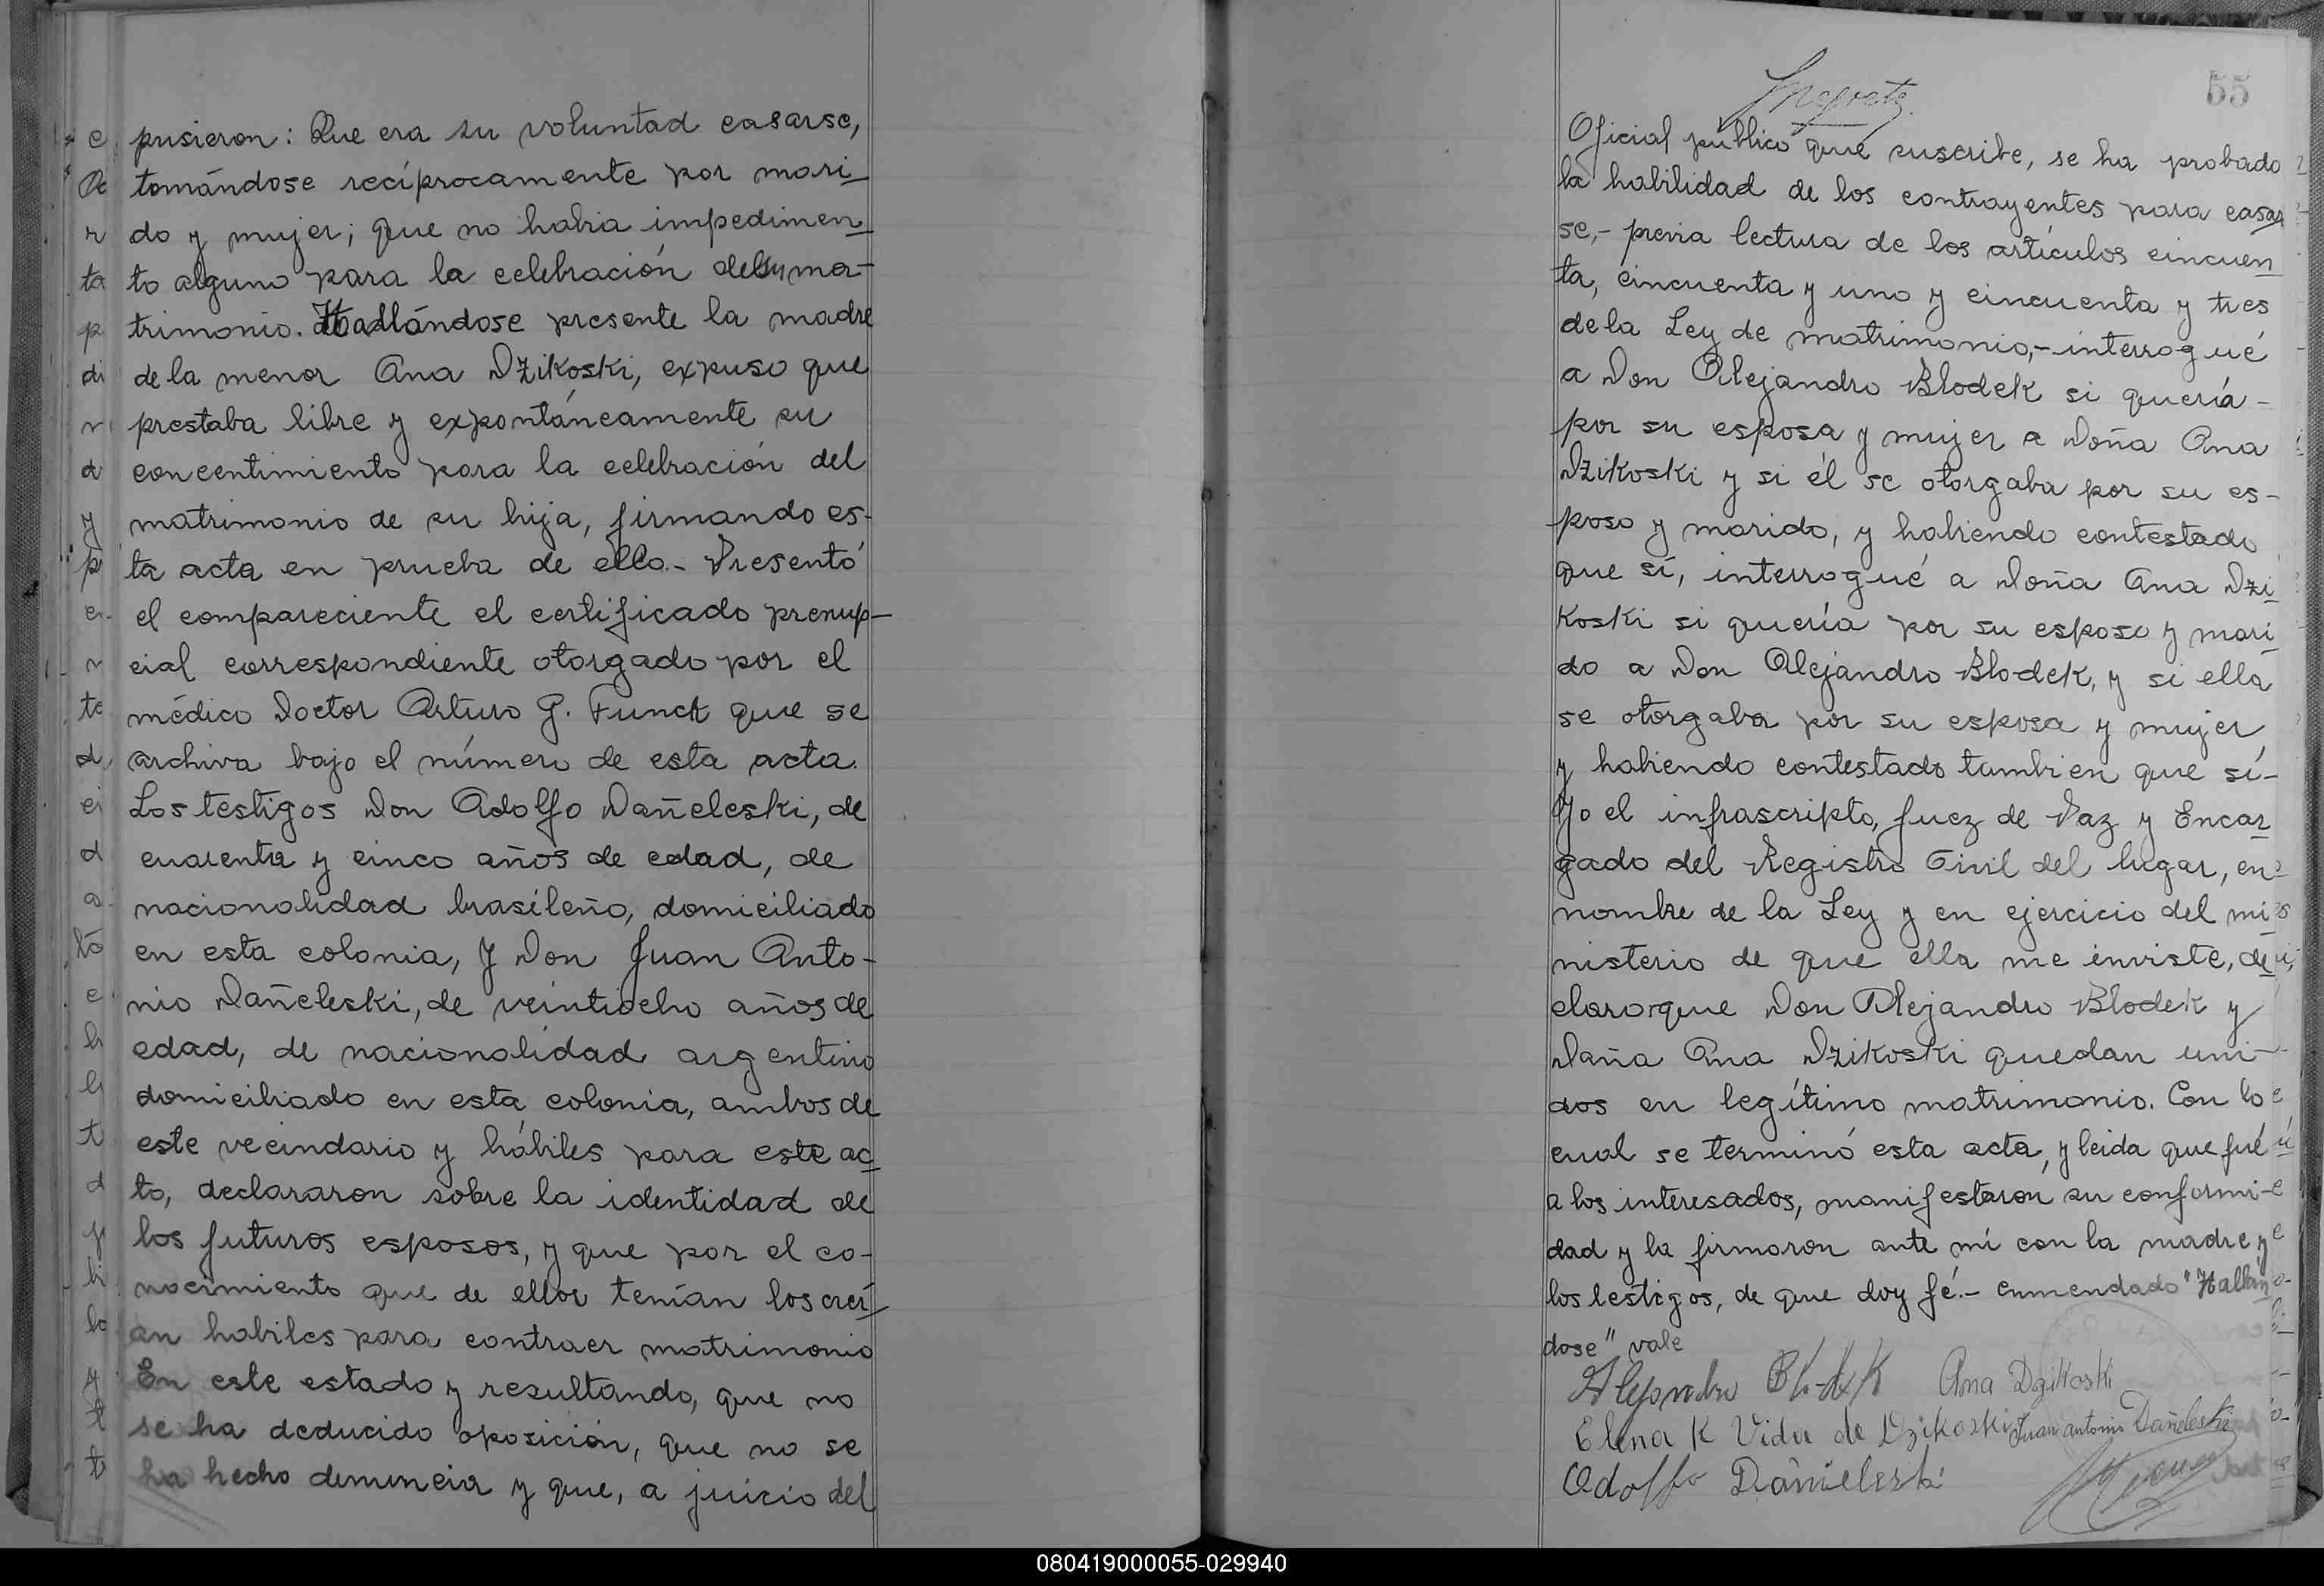 pusieron: Que era su voluntad casarse,
tomándose recíprocamente por mari
do y mujer; que no habia impedimen
to alguno para la celebración de su ma-
trimonio. Hallándose presente la madre
de la menor Ana Dzikoski, expuso que
prestaba libre y expontáneamente su
concentimiento para la celebración del
matrimonio de su hija, firmando es-
ta acta en prueba de ello.- Presentó
el compareciente el certificado prenup-
cial correspondiente otorgado por el
médico Doctor Arturo G. Funck que se
archiva bajo el número de esta acta.
Los testigos Don Adolfo Dañeleski, de
cuarenta y cinco años de edad, de
nacionalidad brasileño, domiciliado
en esta colonia, y Don Juan Anto-
nio Dañeleski, de veintiocho años de
edad, de nacionalidad argentino
domiciliado en esta colonia, ambos de
este vecindario y hábiles para este ac
to, declararon sobre la identidad de
los futuros esposos, y que por el co-
nocimiento que de ellos tenían los creí
an habiles para contraer matrimonio
En este estado y resultando, que no
se ha deducido oposición, que no se
ha hecho denuncia y que, a juicio del
55
Oficial público que suscribe, se ha probado
la habilidad de los contrayentes para casar
se,- previa lectura de los artículos cincuen
ta, cincuenta y uno y cincuenta y tres
de la Ley de matrimonio,- interrogué
a Don Alejandro Blodek si quería-
por su esposa y mujer a Doña Ana
Dzikoski y si él se otorgaba por su es-
poso y marido, y habiendo contestado
que sí, interrogué a Doña Ana Dzi
koski si quería por su esposo y mari
do a Don Alejandro Blodek, y si ella
se otorgaba por su esposa y mujer
y habiendo contestado tambien que sí-
Yo el infrascripto, Juez de Paz y Encar
gado del Registro Civil del lugar, en
nombre de la Ley y en ejercicio del mi
nisterio de que ella me inviste, de
claro que Don Alejandro Blodek y
Daña Ana Dzikoski quedan uni-
dos en legítimo matrimonio. Con lo
cual se terminó esta acta, y leida que fué
a los interesados, manifestaron su conformi-
dad y la firmaron ante mí con la madre y
los testigos, de que doy fé.- enmendado "Hallán
dose" vale
Alejandro Blodek Ana Dzikoski
Elena K Vida de Dzikoski Juan antonio Dañeleski
Adolfo Dañieleski
080419000055-029940